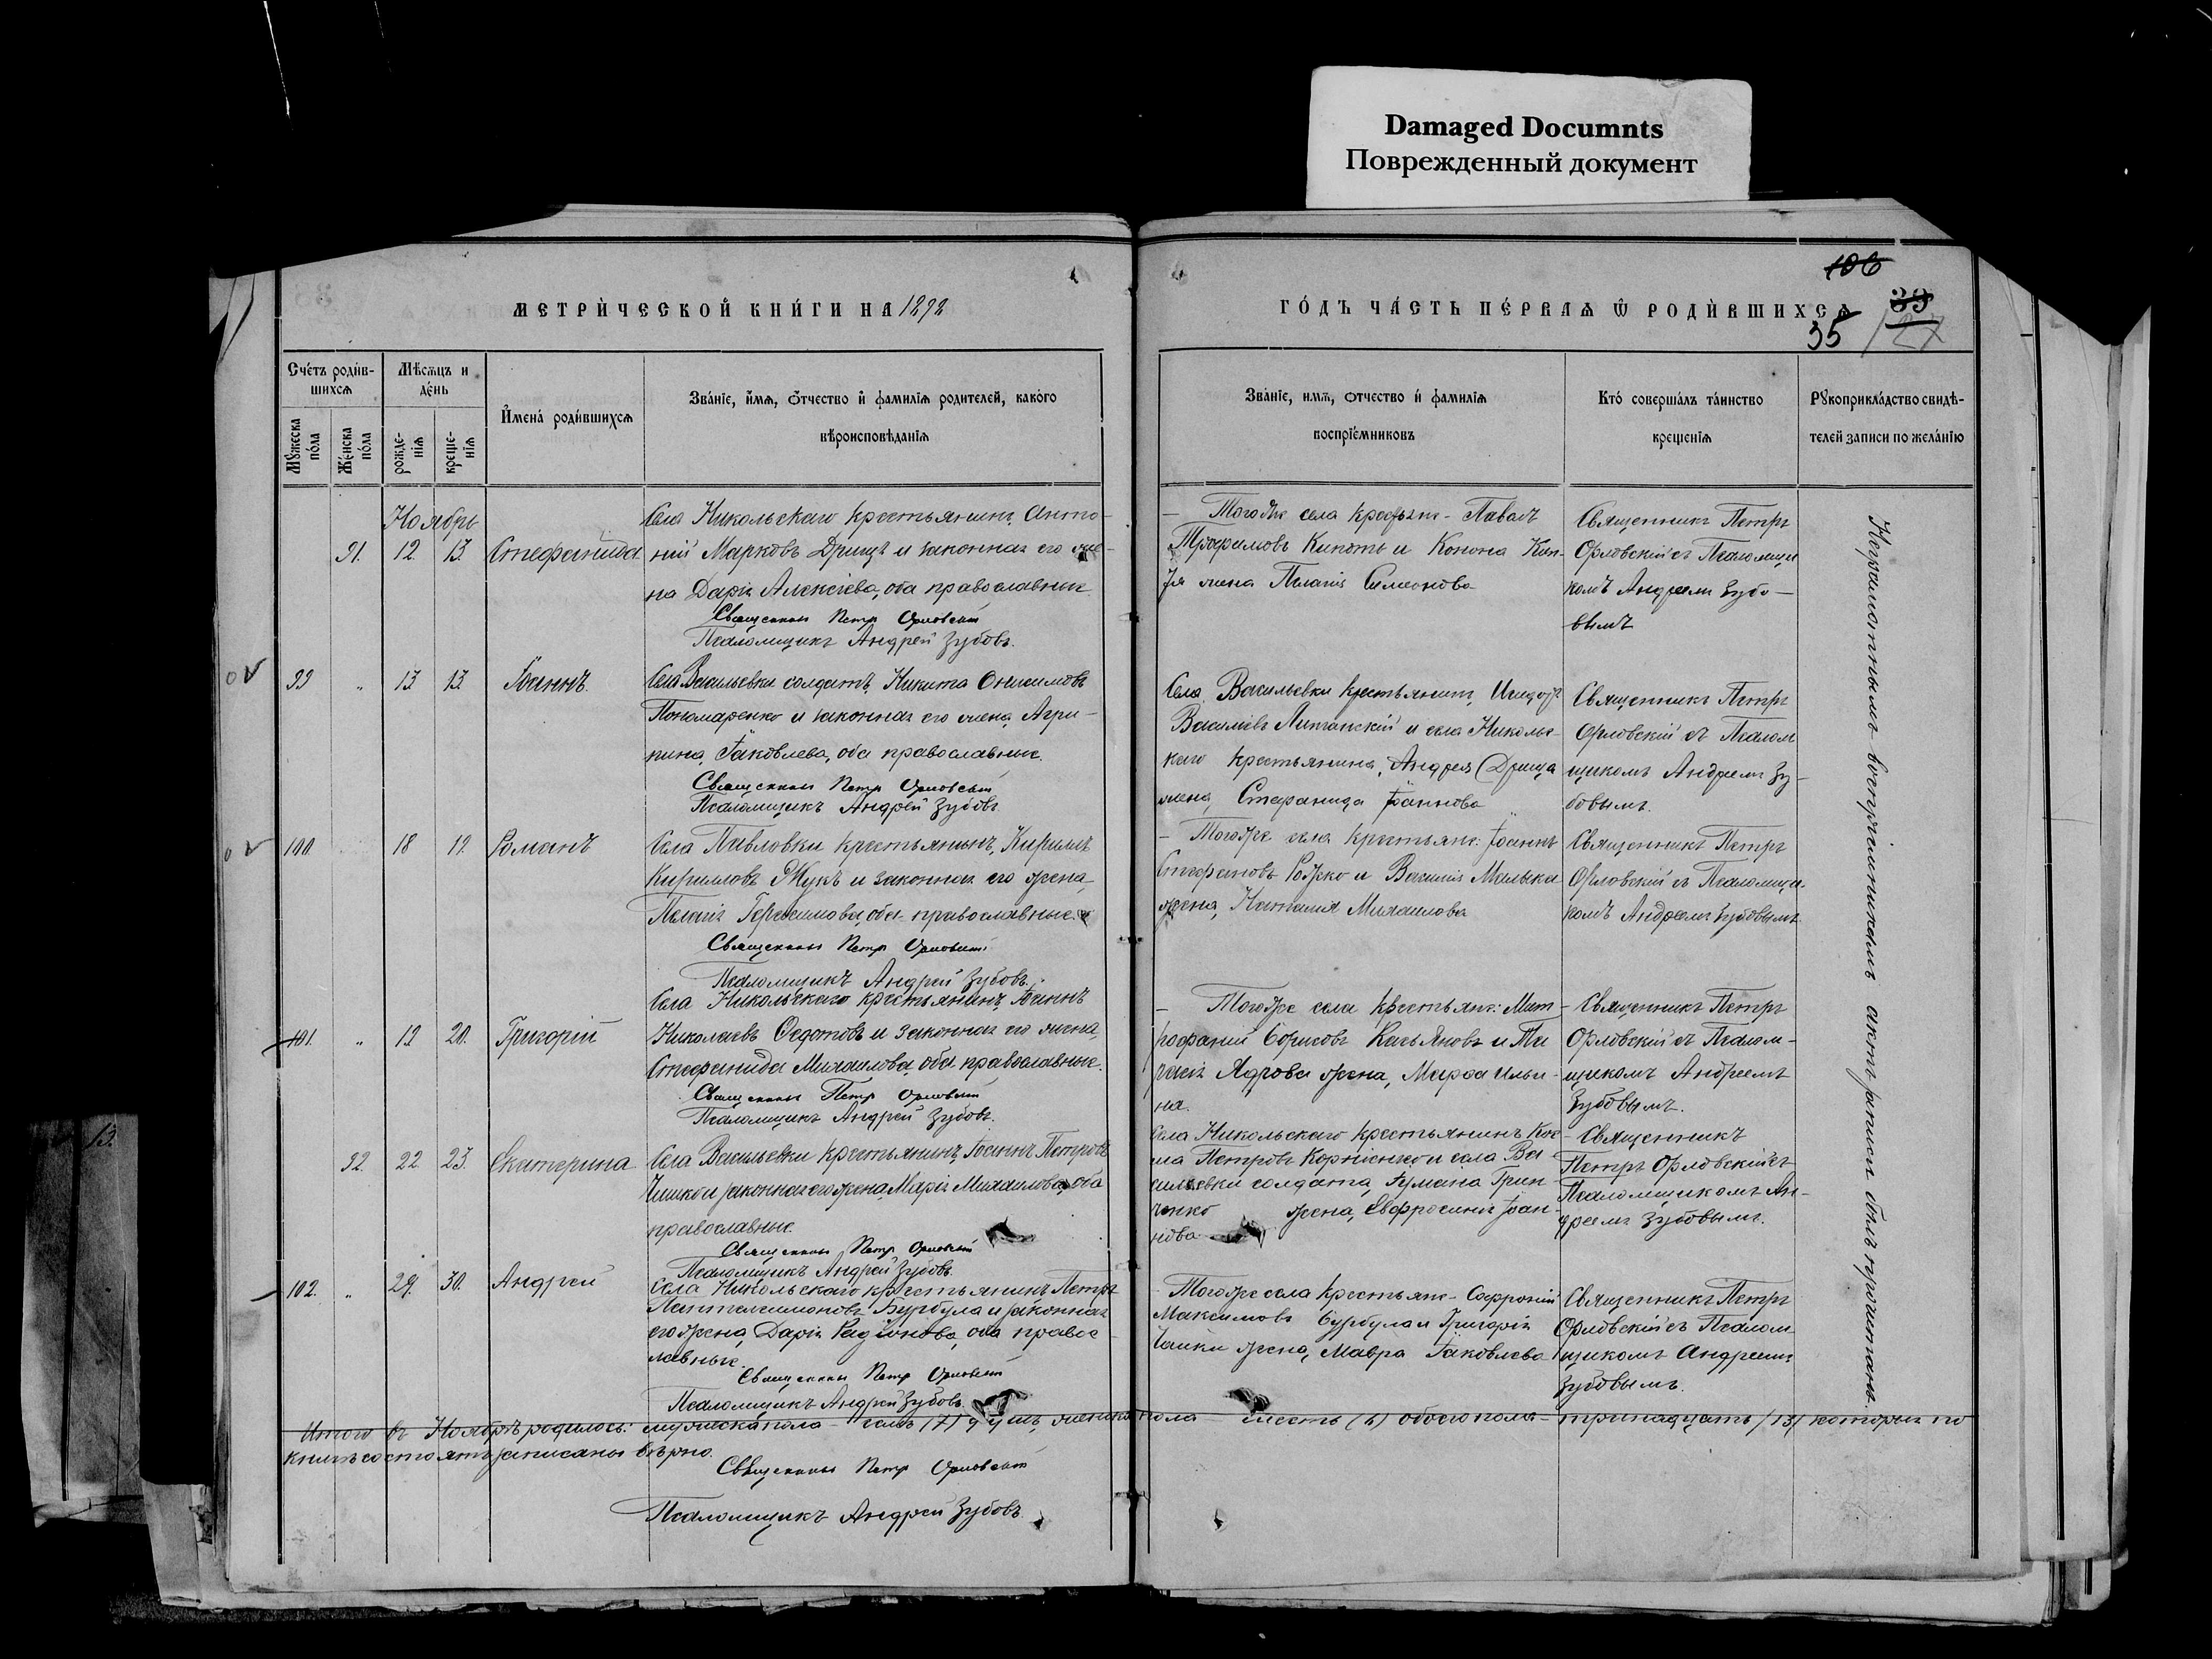 Damaged Documnts
Поврежденный документ
106
МЕТРИЧЕСКОЙ КНИГИ НА 1892
ГОДЪ ЧАСТЬ ПЕРВАЯ Ѡ РОДИВШИХСѦ
39
35
127
Счетъ родив-
шихсѧ
Мужеска
пола
Женска
пола
Мѣсѧцъ и
день
рожде-
нїѧ
креще-
нїѧ
Имена родившихсѧ
Званїе, имѧ, ѿчество и фамилїѧ родителей, какого
вѣроисповѣданїѧ
Званїе, имѧ, отчество и фамилїѧ
воспрїемниковъ
Кто совершалъ таинство
крещенїѧ
Рꙋкоприкладство свидѣ-
телей записи по желанїю
Ноябрь
91. 12. 13. Стефанида
Села Никольскаго крестьянинъ, Анто-
ній Марковъ Дрищъ и законная его же-
на Дарія Алексіева, оба православные
Священникъ Петръ Орловскій
Псаломщикъ Андрей Зубовъ.
— Тогоже села крестьян- Павелъ
Трофимовъ Кикоть и Конона
жена Пелагія Симеонова
Священникъ Петръ
Орловскій съ Псаломщи
комъ Андреемъ Зубо-
вымъ
99 " 13 13. Іоаннъ.
Села Васильевки солдатъ, Никита Онисимовъ
Пономаренко и законная его жена, Агри-
пина, Іаковлева, оба православные.
Священникъ Петръ Орловскій
Псаломщикъ Андрей Зубовъ
Села Васильевки крестьянинъ, Исидоръ
Василіевъ Литанскій и села Николь-
каго крестьянина, Андрея Дрища
жена, Стефанида Іоаннова
Священникъ Петръ
Орловскій съ Псалом
щикомъ Андреемъ Зу-
бовымъ.
100. 18 19. Романъ
Села Павловки крестьянинъ, Кириллъ
Кирилловъ Жукъ и законная его жена,
Пелагія Герасимова, оба православные.
Священникъ Петръ Орловскій
Псаломщикъ Андрей Зубовъ.
— Тогоже села крестьян: Іоаннъ
Стефановъ Рожко и Василія Малыка
жена, Наталія Михаилова
Священникъ Петръ
Орловскій съ Псаломщи-
комъ Андреемъ Зубовымъ.
101. " 19. 20. Григорій
Села Никольскаго крестьянинъ, Іоаннъ
Николаевъ Ѳедотовъ и законная его жена,
Стефанида Михаилова, оба православные.
Священникъ Петръ Орловскій
Псаломщикъ Андрей Зубовъ.
— Тогоже села крестьян: Мит-
рофаній Борисовъ Касьяновъ и
Ядрова жена, Марѳа Ильи-
на.
Священникъ Петръ
Орловскій съ Псалом-
щикомъ Андреемъ
Зубовымъ.
92. 22 23. Екатерина
Села Васильевки крестьянинъ, Іоаннъ Петровъ
Чишко и законная его жена, Марія Михаилова, оба
православные.
Священникъ Петръ Орловскій
Псаломщикъ Андрей Зубовъ.
Села Никольскаго крестьянинъ Кос-
ма Петровъ Корніенко и села Ва-
сильевки солдата, Грин-
ченко жена, Евфросинія Іоан-
нова
— Священникъ
Петръ Орловскій съ
Псаломщикомъ Ан-
дреемъ Зубовымъ.
102. " 29. 30. Андрей
Села Никольскаго крестьянинъ Петръ
Пантелеимоновъ Бурбула и законная
его жена, Дарія Родіонова, оба правос-
лавные.
Священникъ Петръ Орловскій
Псаломщикъ Андрей Зубовъ
Тогоже села крестьян- Софроній
Максимовъ Бурбула и Григорія
Чайки жена, Мавра Іаковлева
Священникъ Петръ
Орловскій съ Псалом
щикомъ Андреемъ
Зубовымъ.
Неграмотнымъ воспріемникамъ актъ записи былъ прочитанъ.
Итого въ Ноябрѣ родилось: мужска пола – семь (7) душъ, женска пола – шесть (6) обоего пола – тринадцать (13) которыя по
книгѣ состоятъ записаны вѣрно.
Священникъ Петръ Орловскій
Псаломщикъ Андрей Зубовъ.
13.